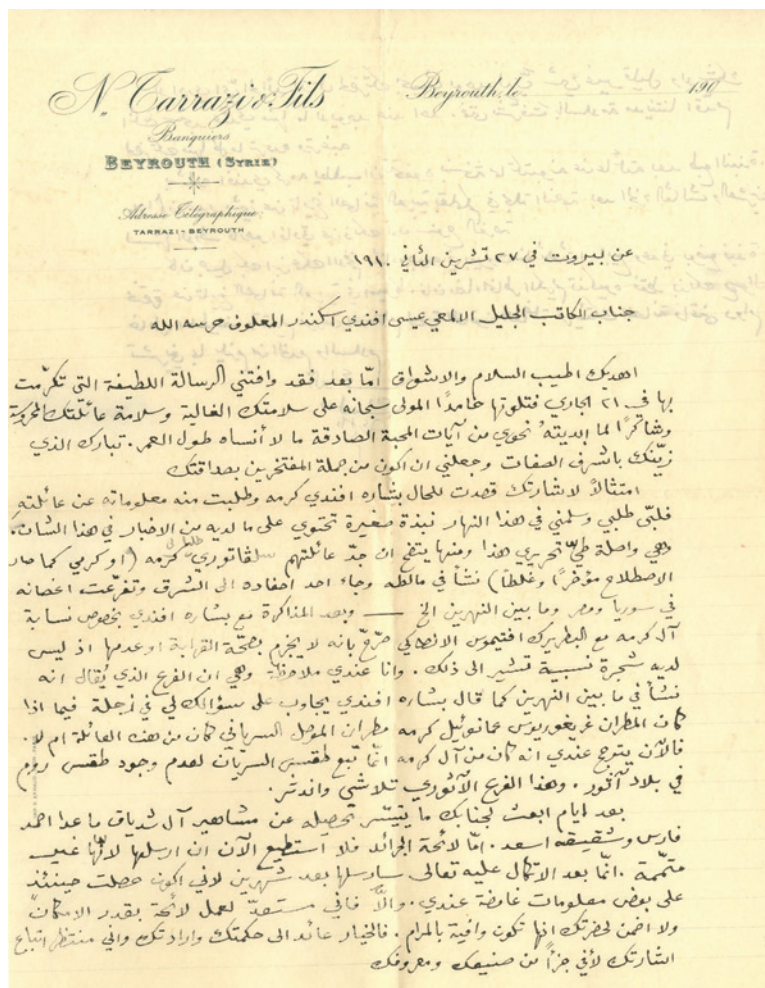 N. Tarrazi & Fils
Beyrouth, le 190
Banquiers
BEYROUTH (SYRIE)
Adresse Télégraphique:
TARRAZI - BEYROUTH
عن بيروت في ٢٧ تشرين الثاني ١٩١٠
جناب الكاتب الجليل الالمعي عيسى افندي اسكندر المعلوف حرسه الله
اهديك اطيب السلام والاشواق امّا بعد فقد وافتني الرسالة اللطيفة التي تكرّمت
بها في ٢١ الجاري فتلوتها حامدًا المولى سبحانه على سلامتك الغالية وسلامة عائلتك المحروسة
وشاكرًا لما ابديته نحوي من آيات المحبة الصادقة ما لا أنساه طول العمر. تبارك الذي
زيّنك باشرف الصفات وجعلني ان اكون من جملة المفتخرين بصداقتك
امتثالاً لاشارتك قصدت للحال بشاره افندي كرمه وطلبت منه معلوماته عن عائلته
فلبّى طلبي وسلمني في هذا النهار نبذة صغيرة تحتوي على ما لديه من الاخبار في هذا الشان.
وهي واصلة طيّ تحريري هذا ومنها يتضح ان جدّ عائلتهم سلڤاتوري كرمه (او كرمي كما صار
الاصطلاح مؤخرًا وغلطًا) نشأ في مالطه وجاء احد احفاده الى الشرق وتفرّعت اغصانه
في سوريا ومصر وما بين النهرين الخ — وبعد المذاكرة مع بشاره افندي بخصوص نسابة
آل كرمه مع البطريرك افتيموس الانطاكي صرّح بانه لا يجزم بصحّة القرابة او عدمها اذ ليس
لديه شجرة نسبية تشير الى ذلك. وانا عندي ملاحظة وهي ان الفرع الذي يُقال انه
نشأ في ما بين النهرين كما قال بشاره افندي يجاوب على سؤالك لي في زحلة فيما اذا
كان المطران غريغوريوس عمانوئيل كرمه مطران الموصل السرياني كان من هذه العائلة ام لا.
فالآن يترجح عندي انه كان من آل كرمه انما تبع طقس السريان لعدم وجود طقس روم
في بلاد آثور. وهذا الفرع الآثوري تلاشى واندثر.
بعد ايام ابعث لجنابك ما يتيسّر تحصيله عن مشاهير آل شدياق ما عدا احمد
فارس وشقيقه اسعد. امّا لائحة الجرائد فلا استطيع الآن ان ارسلها لانّها غير
متمّمة. انّما بعد الاتكال عليه تعالى سارسلها بعد شهرين لاني اكون حصلت حينئذ
على بعض معلومات غامضة عندي. والّا فاني مستعدّ لعمل لائحة بقدر الامكان
ولا اضمن لحضرتك انها تكون وافية بالمرام. فالخيار عائد الى حكمتك وارادتك واني منتظر اتباع
اشارتك لأفي جزأ من صنيعك ومعروفك